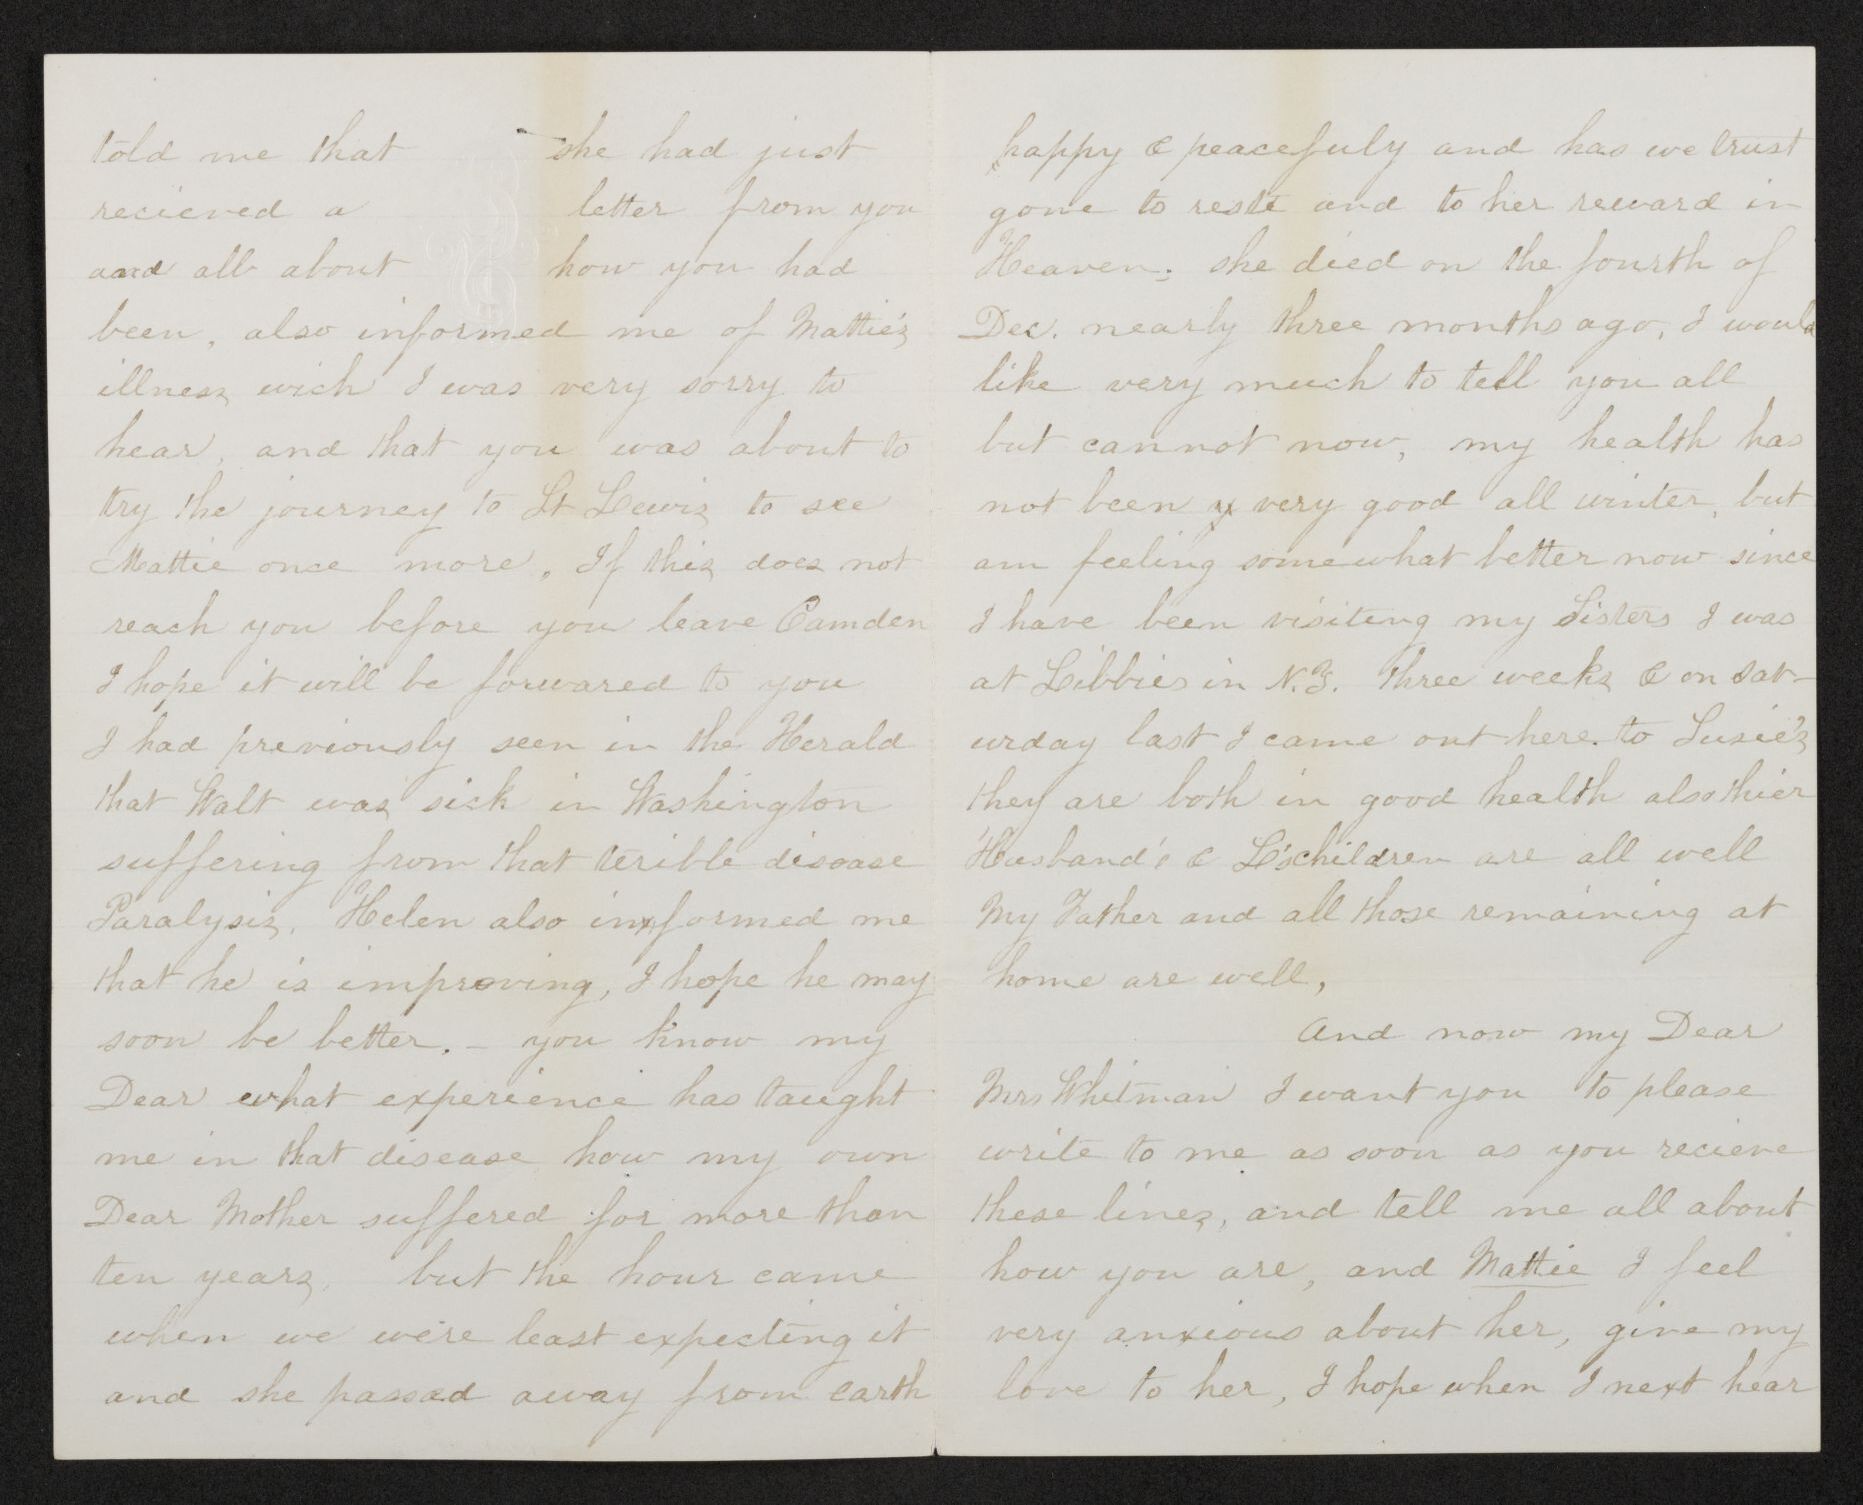 told me that she had just
recieved a letter from you
and all about how you had
been, also informed me of Mattie's
illness wich I was very sorry to
hear, and that you was about to
try the journey to St Lewis to see
Mattie once more. If this does not
reach you before you leave Camden
I hope it will be forwared to you
I had previously seen in the Herald
that Walt was sick in Washington
suffering from that terible disease
Paralysis. Helen also informed me
that he is improving, I hope he may
soon be better. – you know my
Dear what experience has taught
me in that disease how my own
Dear Mother suffered for more than
ten years, but the hour came
when we were least expecting it
and she passed away from earth
happy & peacefuly and has we trust
gone to rest and to her reward in
Heaven. she died on the fourth of
Dec. nearly three months ago, I would
like very much to tell you all
but cannot now, my health has
not been very good all winter, but
am feeling somewhat better now since
I have been visiting my Sisters I was
at Libbies in N.Y. three weeks & on Sat-
urday last I came out here to Susie's
they are both in good health also thier
Husband's & L's children are all well
My Father and all those remaining at
home are well,
And now my Dear
Mrs Whitman I want you to please
write to me as soon as you recieve
these lines, and tell me all about
how you are, and Mattie I feel
very anxious about her, give my
love to her, I hope when I next hear